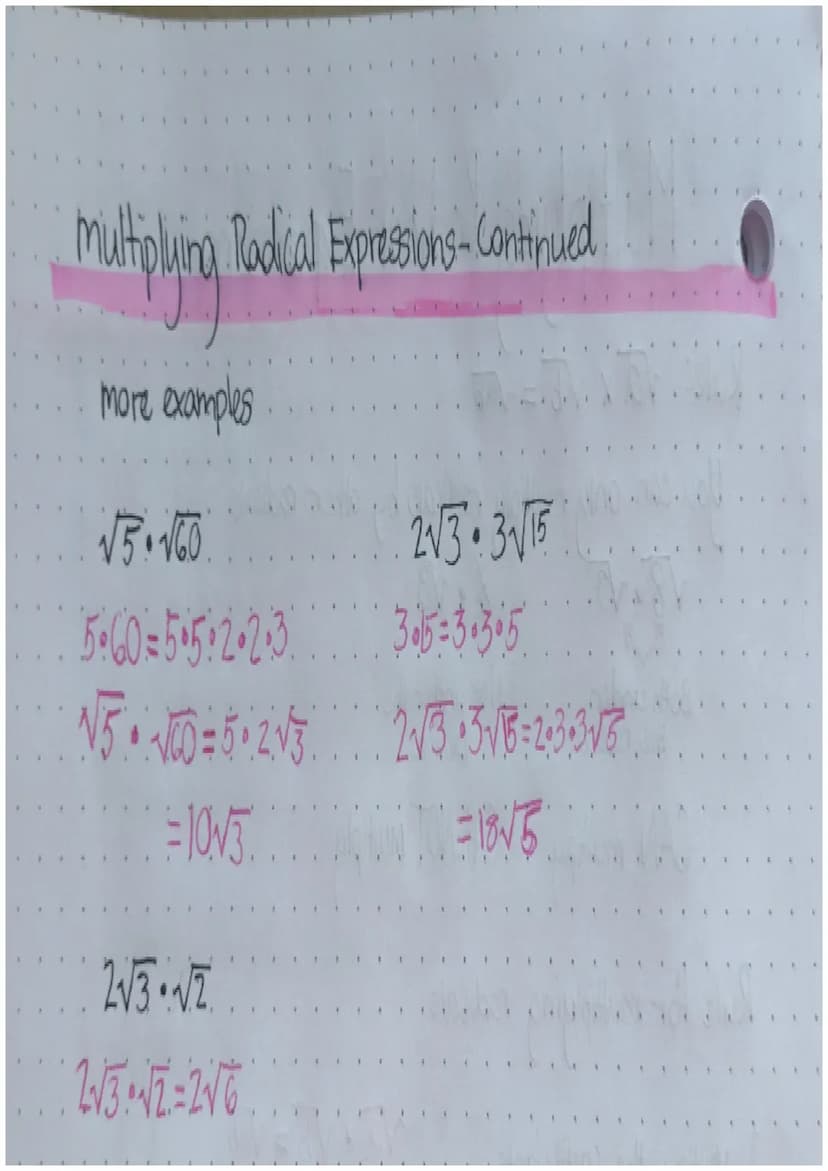 Multiplying Radical Expressions - Continued
more examples
√5 • √60
5•60=5•5•2•2•3
√5 • √60 = 5•2√3
=10√3
2√3 • 3√15
3•15=3•3•5
2√3 •3√15=2•3•3√5
=18√5
2√3 • √2
2√3 • √2 = 2√6